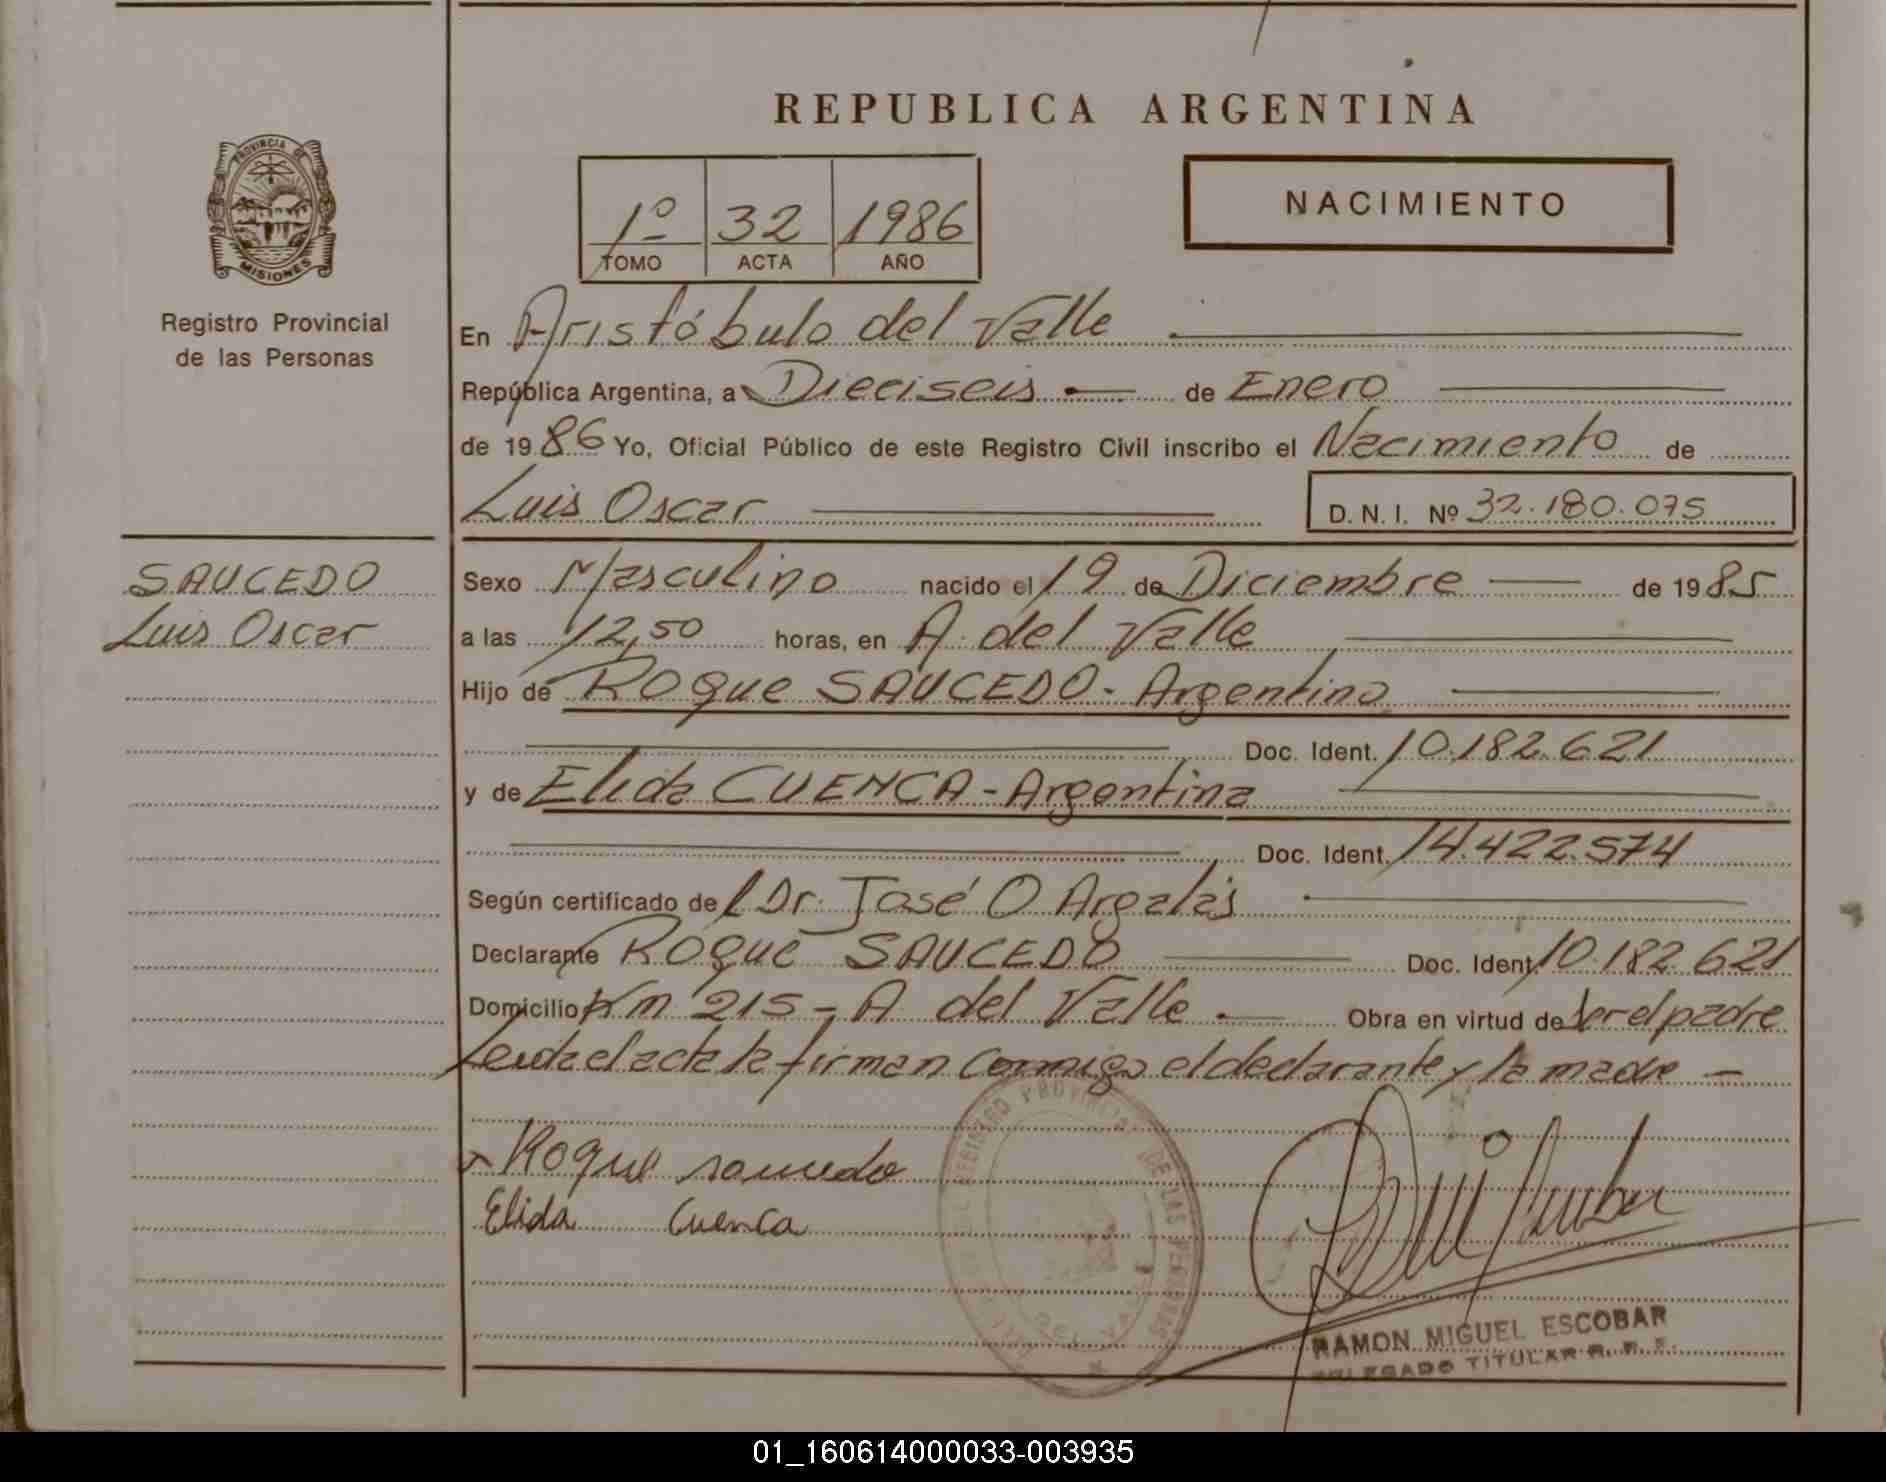 REPUBLICA ARGENTINA
PROVINCIA DE
MISIONES
Registro Provincial
de las Personas
1º 32 1986
TOMO ACTA AÑO
NACIMIENTO
En Aristóbulo del Valle
República Argentina, a Dieciseis de Enero
de 1986 Yo, Oficial Público de este Registro Civil inscribo el Nacimiento de
Luis Oscar
D. N. I. Nº 32.180.075
SAUCEDO
Luis Oscar
Sexo Masculino nacido el 19 de Diciembre de 1985
a las 12,50 horas, en A. del Valle
Hijo de Roque SAUCEDO - Argentino
Doc. Ident. 10.182.621
y de Elida CUENCA - Argentina
Doc. Ident. 14.422.574
Según certificado del Dr. José O Argalás
Declarante Roque SAUCEDO Doc. Ident. 10.182 621
Domicilio Km 215 - A. del Valle Obra en virtud de Ser el padre
Leida el acta la firman Conmigo el declarante y la madre
Roque saucedo
Elida Cuenca
REGISTRO PROVINCIAL DE LAS PERSONAS
DEL VALLE
RAMON MIGUEL ESCOBAR
DELEGADO TITULAR R. P. P.
01_160614000033-003935